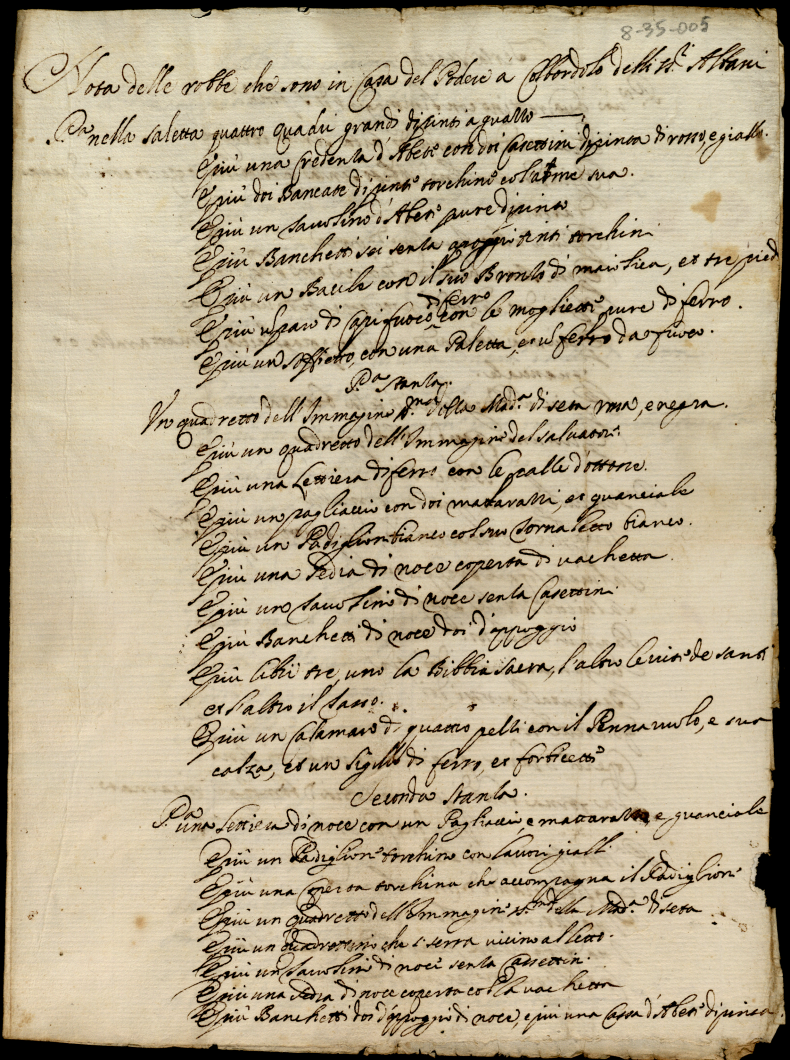 8-35-005
Nota delle robbe che sono in Casa del Podere a Colbordolo delli ss.ri Albani
P.a nella saletta quattro quadri grandi dipinti a guazzo
E più una credenza d'Abete con doi Casettini dipinta di rosso, e giallo.
E più doi Bancate dipinte torchine col'arme sua.
E più un tavolino d'Abete pure dipinto
E più Banchetti sei senza apoggi tinti torchini
E più un Bacile con il suo Bronzo di maiolica, et tre pied
E più un paro di capifuoco di ferro con le mogliette pure di ferro.
E più un soffietto, con una Paletta, e un ferro da fuoco.
P.a stanza.
Un quadretto dell'Immagine della Mad.a di seta rossa, e negra.
E più un quadretto dell'Immagine del salvatore.
E più una Lettiera di ferro con le palle d'ottone.
E più un pagliaccio con doi mattarazzi, et guanciale
E più un Padiglion bianco col suo tornaletto bianco.
E più una sedia di noce coperta di vachetta
E più un tavolino di noce senza Casettini
E più Banchetti di noce doi d'appoggio
E più libri tre, uno la Bibbia sacra, l'altro le vite de santi
et l'altro il Sasso.
E più un Calamaro di quattro pelli con il Pennarolo, e sua
calza, et un sigillo di ferro, et forbicette
Seconda stanza.
P.a una lettiera di noce con un Pagliaccio e mattarazzo e guanciale
E più un Padiglione torchino con lavori gialli
E più una coperta torchina che accompagna il Padiglione
E più un quadretto dell'Immagine della Mad.a di seta
E più un quadrettino che serra vicino al letto.
E più un tavolino di noce senza Cassettini.
E più una sedia di noce coperta colla vachetta
E più Banchetti doi d'appoggio di noce, e più una Cassa d'Abete dipinta